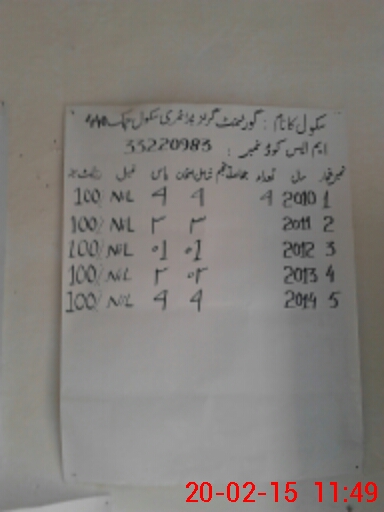 سکول کا نام : گورنمنٹ گرلز پرائمری سکول چک
ایم ایس کوڈ نمبر : 33220983
نمبر شمار سال تعداد جماعت پنجم شامل امتحان پاس فیل رزلٹ %
1 2010 4 4 4 NIL 100/
2 2011 ٣ ٣ NIL 100/
3 2012 01 01 NIL 100/
4 2013 ٠٢ ٢ NIL 100/
5 2014 4 4 NIL 100/
20-02-15 11:49